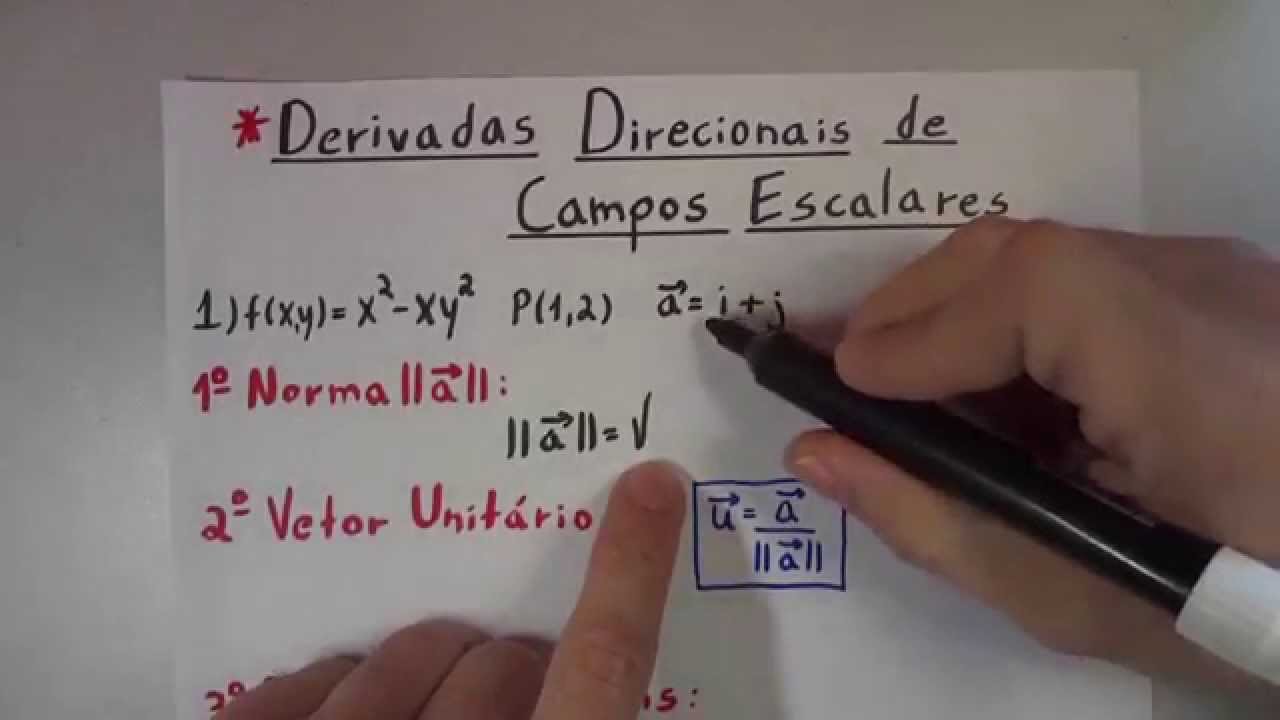 *Derivadas Direcionais de
Campos Escalares
1) f(x,y)= x²-xy² P(1,2) a⃗= i+j
1º Norma ||a⃗||:
||a⃗||= √
2º Vetor Unitário
u⃗= a⃗
||a⃗||